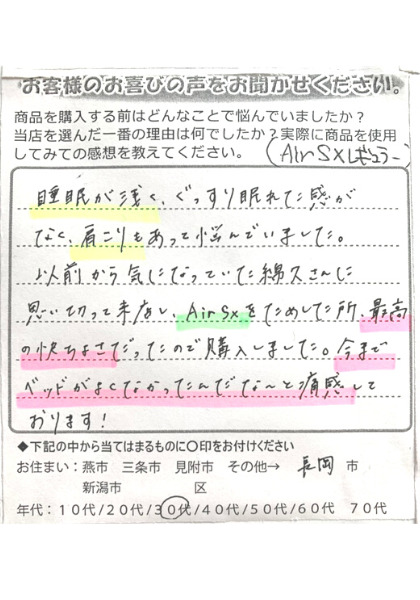 お客様のお喜びの声をお聞かせください。
商品を購入する前はどんなことで悩んでいましたか？
当店を選んだ一番の理由は何でしたか？実際に商品を使用
してみての感想を教えてください。(AirSXレギュラー)
睡眠が浅く、ぐっすり眠れた感が
なく、肩こりもあって悩んでいました。
以前から気になっていた綿久さんに
思い切って来店し、AirSxをためした所、最高
の快ちよさだったので購入しました。今まで
ベッドがよくなかったんだな〜と痛感して
おります！
◆下記の中から当てはまるものに〇印をお付けください
お住まい：燕市 三条市 見附市 その他→ 長岡 市
新潟市 区
年代：１０代/２０代/３０代/４０代/５０代/６０代 ７０代